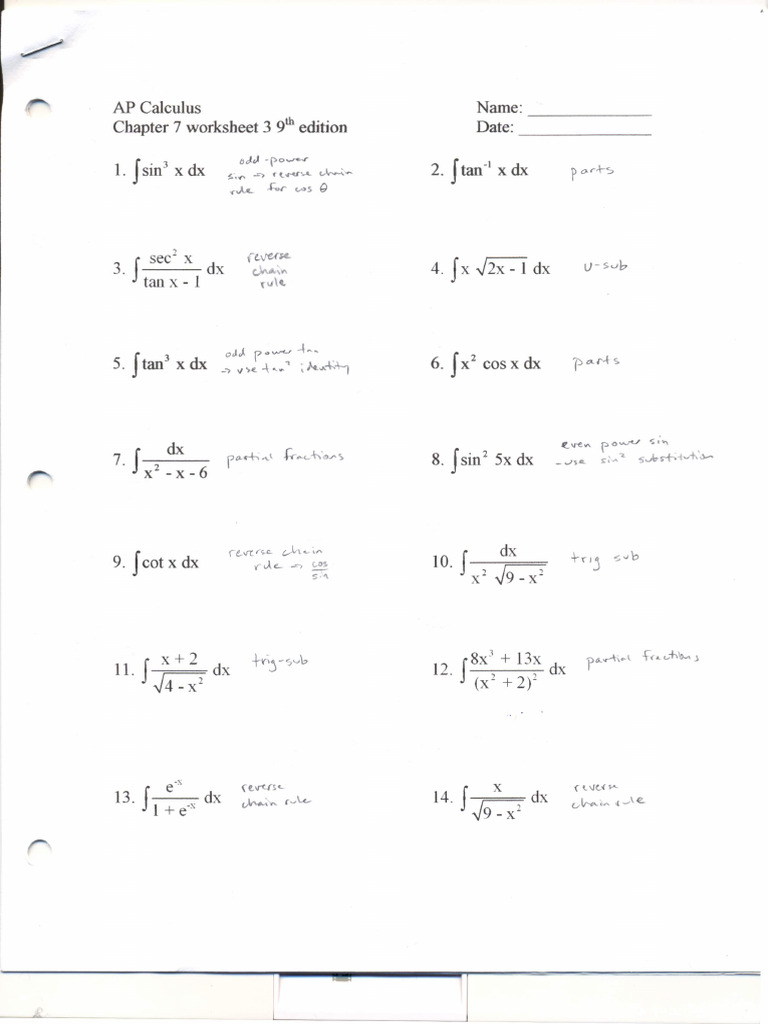 AP Calculus Name: ____________
Chapter 7 worksheet 3 9th edition Date: ____________
1. ∫sin³ x dx odd-power
sin → reverse chain
rule for cos θ
2. ∫tan⁻¹ x dx parts
3. ∫ sec² x / (tan x - 1) dx reverse
chain
rule
4. ∫x √(2x - 1) dx u-sub
5. ∫tan³ x dx odd power tan
→ use tan² identity
6. ∫x² cos x dx parts
7. ∫ dx / (x² - x - 6) partial fractions
8. ∫sin² 5x dx even power sin
- use sin² substitution
9. ∫cot x dx reverse chain
rule → cos/sin
10. ∫ dx / (x² √(9 - x²)) trig sub
11. ∫ (x + 2) / √(4 - x²) dx trig-sub
12. ∫ (8x³ + 13x) / (x² + 2)² dx partial fractions
13. ∫ e⁻ˣ / (1 + e⁻ˣ) dx reverse
chain rule
14. ∫ x / √(9 - x²) dx reverse
chain rule